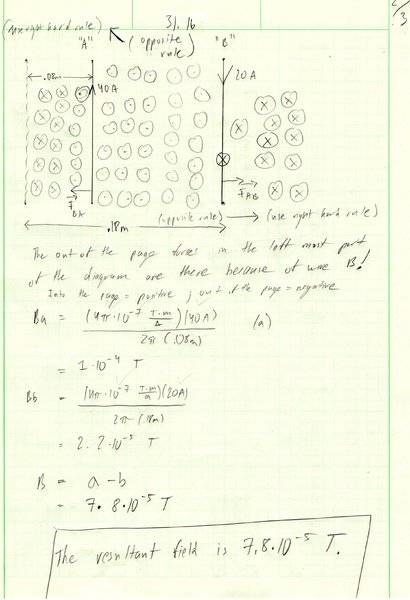 31.16
2/3
(use right hand rule)
"A"
(opposite rule)
"B"
.08m
40A
20A
F BA
F AB
(opposite rule)
(use right hand rule)
.18m
The out of the page forces in the left most part
of the diagram are there because of wire B!
Into the page = positive ; out of the page = negative
Ba = (4π·10⁻⁷ T·m/A)(40A) / 2π(.08m) (a)
= 1·10⁻⁴ T
Bb = (4π·10⁻⁷ T·m/a)(20A) / 2π(.18m)
= 2.2·10⁻⁵ T
B = a-b
= 7.8·10⁻⁵ T
The resultant field is 7.8·10⁻⁵ T.